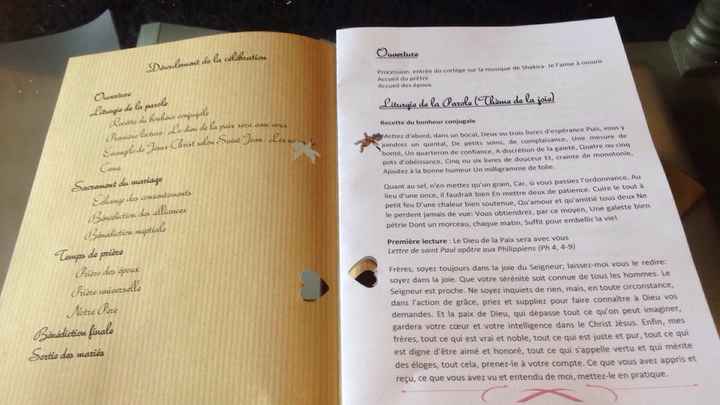 Déroulement de la célébration
Ouverture
Liturgie de la parole
Recette du bonheur conjugale
Première lecture : Le dieu de la paix sera avec vous
Evangile de Jésus-Christ selon Saint Jean : Les
Cana
Sacrement du mariage
Echange des consentements
Bénédiction des alliances
Bénédiction nuptiale
Temps de prière
Prière des époux
Prière universelle
Notre Père
Bénédiction finale
Sortie des mariés
Ouverture
Procession: entrée du cortège sur la musique de Shakira- Je l'aime à mourir
Accueil du prêtre
Accueil des époux
Liturgie de la Parole (Thème de la joie)
Recette du bonheur conjugale
Mettez d'abord, dans un bocal, Deux ou trois livres d'espérance Puis, vous y
joindrez un quintal, De petits soins, de complaisance, Une mesure de
bonté, Un quarteron de confiance, A discrétion de la gaieté, Quatre ou cinq
pots d'obéissance, Cinq ou six livres de douceur Et, crainte de monotonie,
Ajoutez à la bonne humeur Un milligramme de folie.
Quant au sel, n'en mettez qu'un grain, Car, si vous passiez l'ordonnance, Au
lieu d'une once, il faudrait bien En mettre deux de patience. Cuire le tout à
petit feu D'une chaleur bien soutenue, Qu'amour et qu'amitié tous deux Ne
le perdent jamais de vue: Vous obtiendrez, par ce moyen, Une galette bien
pétrie Dont un morceau, chaque matin, Suffit pour embellir la vie!
Première lecture : Le Dieu de la Paix sera avec vous
Lettre de saint Paul apôtre aux Philippiens (Ph 4, 4-9)
Frères, soyez toujours dans la joie du Seigneur; laissez-moi vous le redire:
soyez dans la joie. Que votre sérénité soit connue de tous les hommes. Le
Seigneur est proche. Ne soyez inquiets de rien, mais, en toute circonstance,
dans l'action de grâce, priez et suppliez pour faire connaître à Dieu vos
demandes. Et la paix de Dieu, qui dépasse tout ce qu'on peut imaginer,
gardera votre cœur et votre intelligence dans le Christ Jésus. Enfin, mes
frères, tout ce qui est vrai et noble, tout ce qui est juste et pur, tout ce qui
est digne d'être aimé et honoré, tout ce qui s'appelle vertu et qui mérite
des éloges, tout cela, prenez-le à votre compte. Ce que vous avez appris et
reçu, ce que vous avez vu et entendu de moi, mettez-le en pratique.